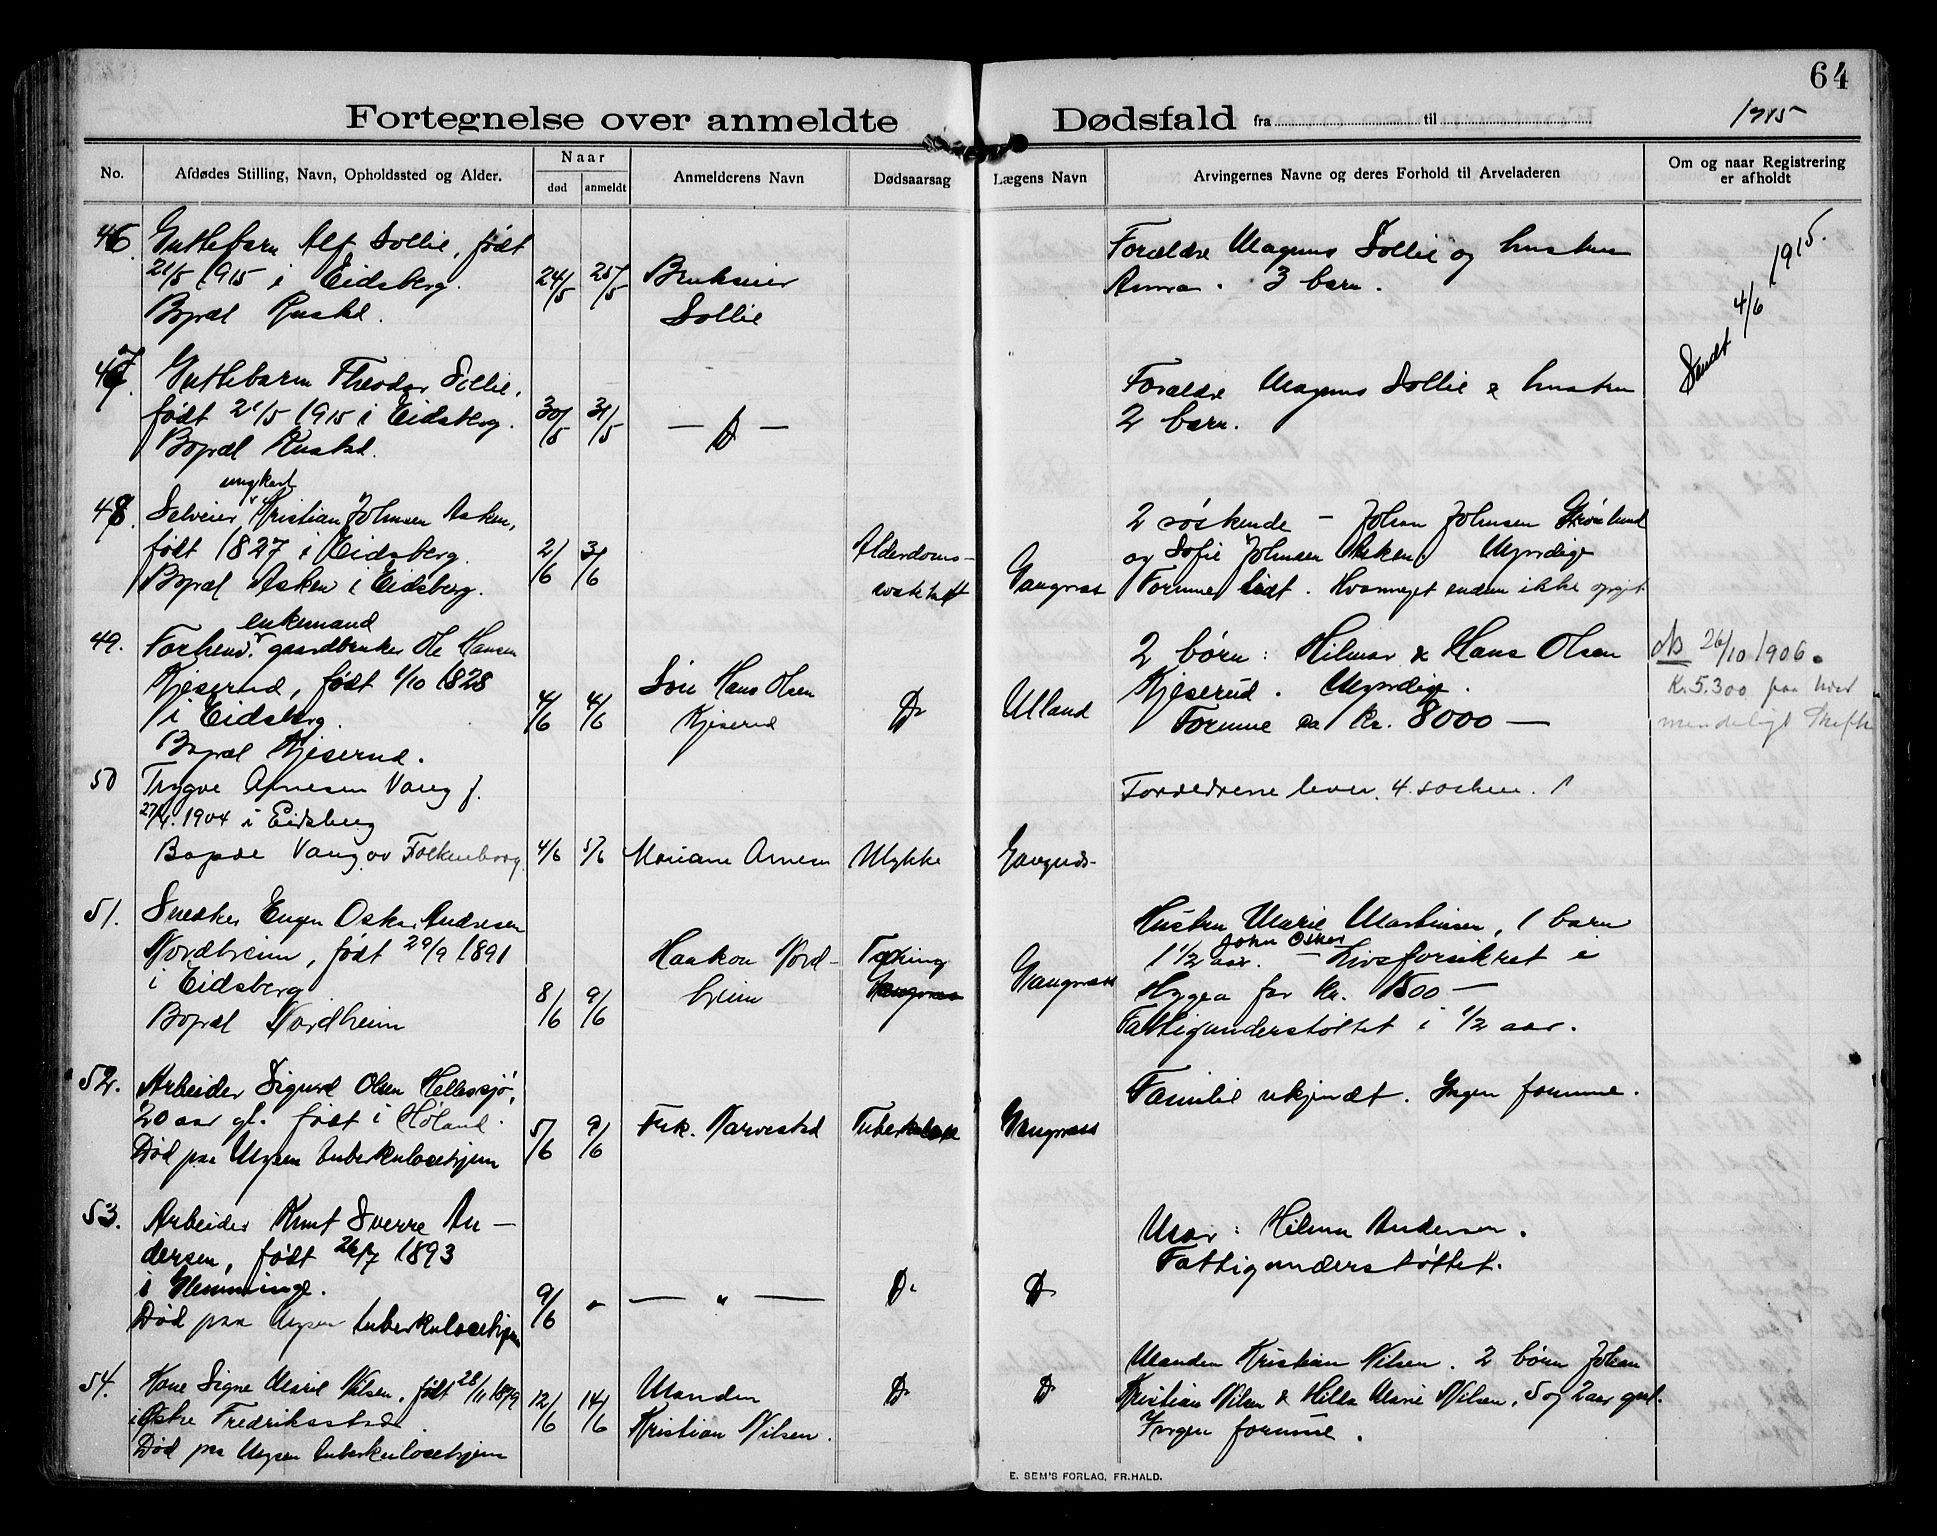 64
Fortegnelse over anmeldte Dødsfald fra til 1915
No.
Afdødes Stilling, Navn, Opholdssted og Alder.
Naar
død
anmeldt
Anmelderens Navn
Dødsaarsag
Lægens Navn
Arvingernes Navne og deres Forhold til Arveladeren
Om og naar Registrering
er afholdt
46.
Guttebarn Alf Sollie, født
21/5 1915 i Eidsberg.
Bopæl Rustad.
24/5
25/5
Sollie
Forældre Magnus Sollie og hustru
Anna. 3 barn.
Sendt 4/6 1915.
47.
Guttebarn Theodor Sollie,
født 21/5 1915 i Eidsberg.
Bopæl Rustad.
30/5
31/5
— D —
Forældre Magnus Sollie & hustru
2 barn.
48.
ungkarl
Selveier Kristian Johnsen Asken,
født 1827 i Eidsberg.
Bopæl Asken i Eidsberg.
2/6
3/6
Alderdoms-
svakhet
Gangnæs
2 søskende — Johan Johnsen
og Sofie Johnsen Asken. Myndige
Formue lidt. Hvormeget endnu ikke opgit.
49.
enkemand
Forhenv. gaardbruker Ole Hansen
Kjeserud, født 1/10 1828
i Eidsberg.
Bopæl Kjeserud.
4/6
4/6
Søn Hans Olsen
Kjeserud
Do
Ulland
2 børn: Hilmar & Hans Olsen
Kjeserud. Myndig.
Formue ca Kr. 8000 —
26/10 1906.
Kr. 5.300 paa hver
50
Trygve Arnesen Vang f.
27/4. 1904 i Eidsberg
Bopæl Vang av Folkenborg.
4/6
5/6
Mariane Arnesen
Gangnæs
Forældrene lever. 4 søsken.
51.
Snedker Eugen Oskar Andresen
Nordheim, født 29/9 1891
i Eidsberg
Bopæl Nordheim
8/6
9/6
Haakon Nord-
heim
Tæring
Gangnæs
Gangnæs
Hustru Marie Martinsen, 1 barn
John Oskar
1 1/2 aar. — Livsforsikret i
Hygea for Kr. 1500 —
Fattigunderstøttet i 1/2 aar.
52.
Arbeider Sigurd Olsen Hellesjø,
20 aar gl. født i Høland.
Død paa Mysen tuberkulosehjem
5/6
9/6
Frk. Narvestad
Tuberkulose
Gangnæs
Familie ukjendt. Ingen formue.
53.
Arbeider Knut Sverre An-
dersen, født 26/7 1893
i Glemminge.
Død paa Mysen tuberkulosehjem
9/6
— " —
Do
Do
Mor: Hilma Andersen.
Fattigunderstøttet.
54.
Kone Signe Marie Nilsen, født 28/11 1879
i Østre Fredriksstad
Død paa Mysen tuberkulosehjem
12/6
14/6
Manden
Kristian Nilsen.
Do
Do
Manden Kristian Nilsen. 2 børn Johan
Kristian Nilsen & Hilda Marie Nilsen, 5 og 2 aar gml.
Ingen formue.
E. SEM'S FORLAG, FR.HALD.